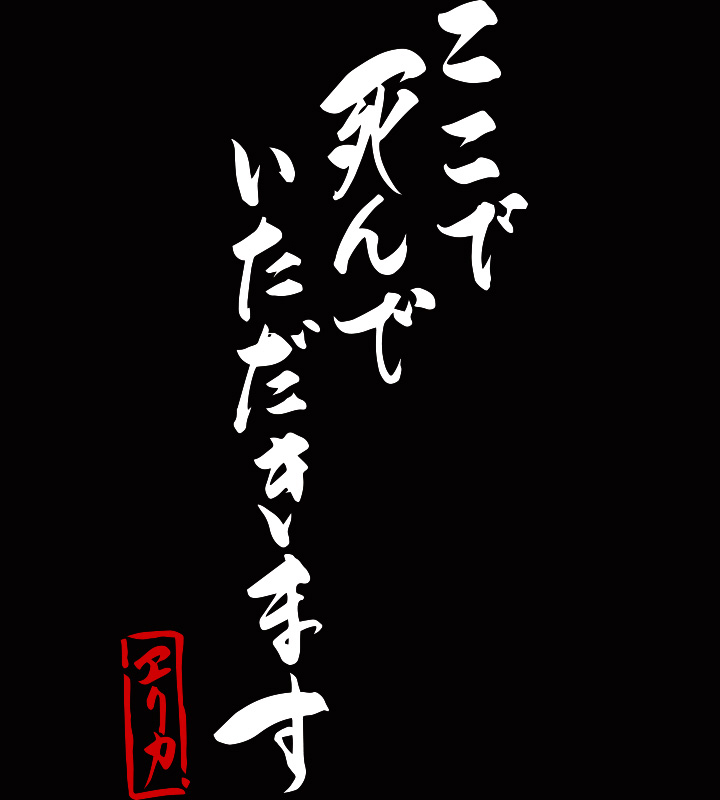 ここで
死んで
いただきます
ヱリカ